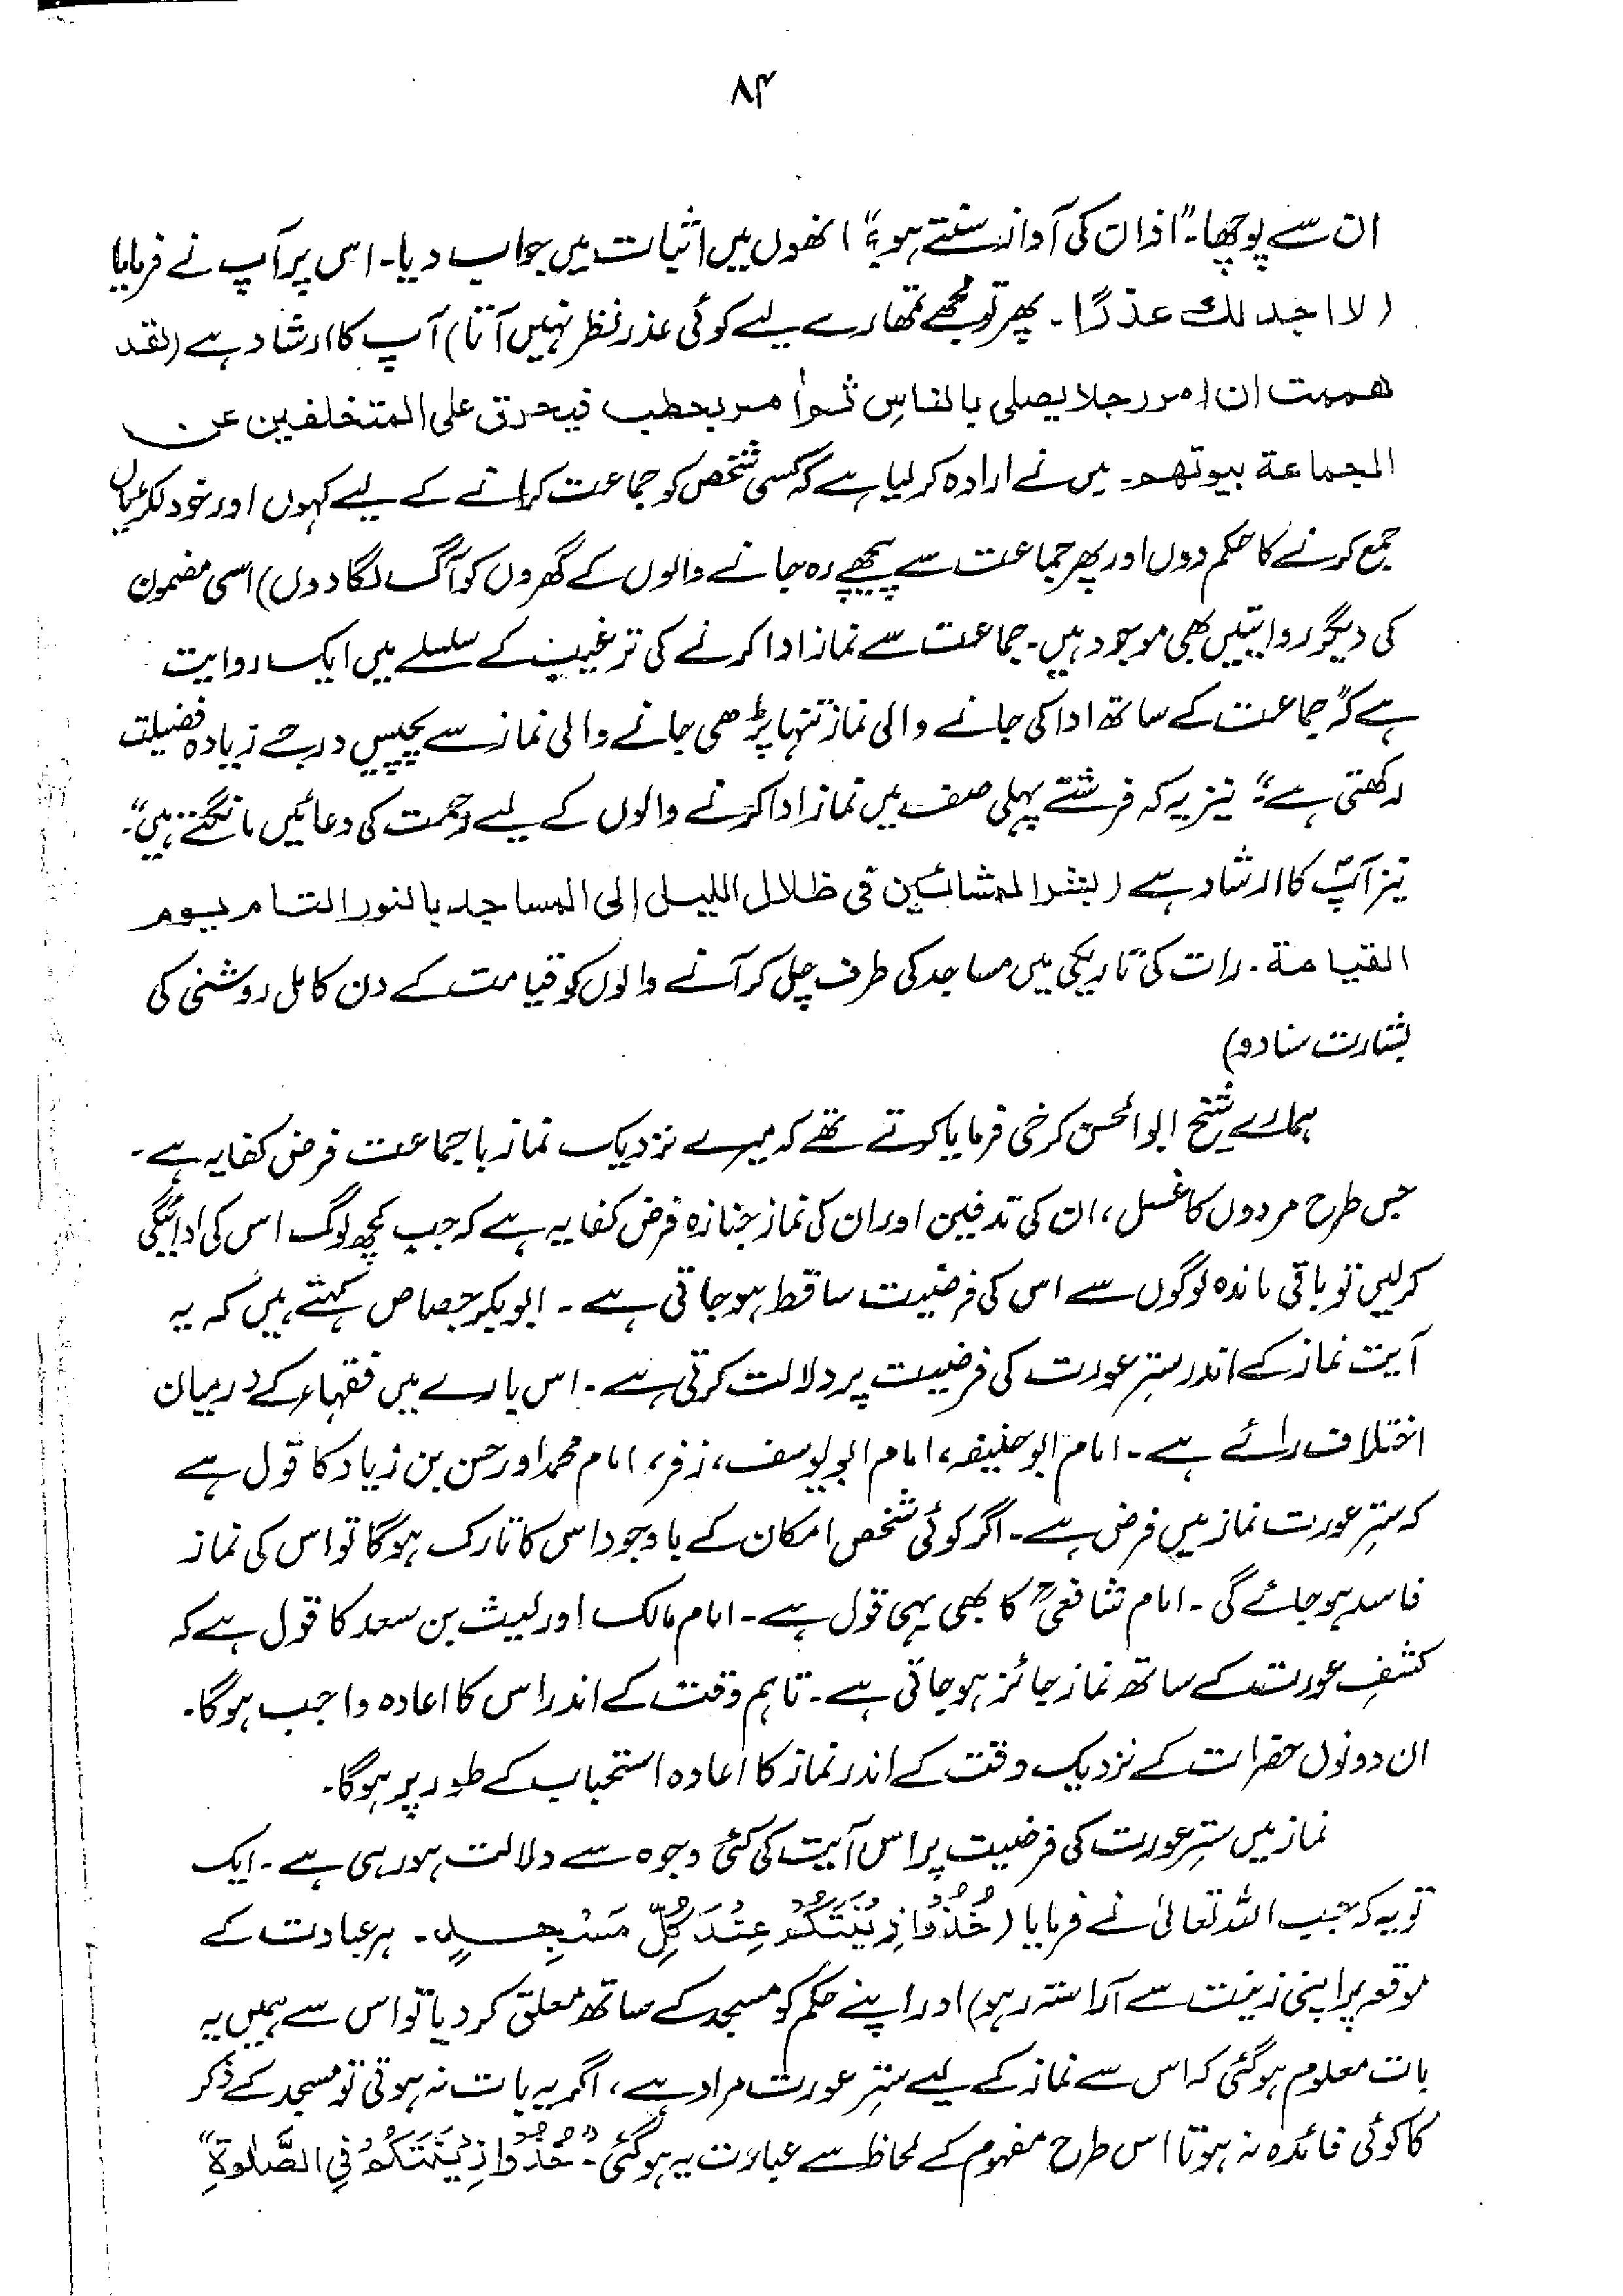 ۸۴
ان سے پوچھا۔"اذان کی آواز سنتے ہو؟" انھوں میں اثبات میں جواب دیا۔ اس پر آپ نے فرمایا
(لا اجد لك عذرًا۔ پھر تو مجھے تمھارے لیے کوئی عذر نظر نہیں آتا) آپ کا ارشاد ہے (لقد
هممت ان اٰمر رجلا يصلى بالناسِ ثم اٰمر بحطب فيحرق على المتخلفين عن
الجماعة بيوتهم۔ میں نے ارادہ کر لیا ہے کہ کسی شخص کو جماعت کرانے کے لیے کہوں اور خود لکڑیاں
جمع کرنے کا حکم دوں اور پھر جماعت سے پیچھے رہ جانے والوں کے گھروں کو آگ لگا دوں) اسی مضمون
کی دیگر روایتیں بھی موجود ہیں۔ جماعت سے نماز ادا کرنے کی ترغیب کے سلسلے میں ایک روایت
ہے کہ "جماعت کے ساتھ ادا کی جانے والی نماز تنہا پڑھی جانے والی نماز سے پچیس درجے زیادہ فضیلت
رکھتی ہے"۔ نیز یہ کہ فرشتے پہلی صف میں نماز ادا کرنے والوں کے لیے رحمت کی دعائیں مانگتے ہیں"۔
نیز آپؐ کا ارشاد ہے (بشر المشائين فى ظلال الليل إلى المساجد بالنور التام يوم
القيامة۔ رات کی تاریکی میں مساجد کی طرف چل کر آنے والوں کو قیامت کے دن کامل روشنی کی
بشارت سنا دو)
ہمارے شیخ ابو الحسن کرخی فرمایا کرتے تھے کہ میرے نزدیک نماز باجماعت فرض کفایہ ہے۔
جس طرح مردوں کا غسل، ان کی تدفین اور ان کی نماز جنازہ فرض کفایہ ہے کہ جب کچھ لوگ اس کی ادائیگی
کر لیں تو باقی ماندہ لوگوں سے اس کی فرضیت ساقط ہو جاتی ہے۔ ابوبکر جصاص کہتے ہیں کہ یہ
آیت نماز کے اندر سترِ عورت کی فرضیت پر دلالت کرتی ہے۔ اس بارے میں فقہاء کے درمیان
اختلاف رائے ہے۔ امام ابو حنیفہ، امام ابو یوسف، زفر، امام محمد اور حسن بن زیاد کا قول ہے
کہ سترِ عورت نماز میں فرض ہے۔ اگر کوئی شخص امکان کے باوجود اس کا تارک ہو گا تو اس کی نماز
فاسد ہو جائے گی۔ امام شافعیؒ کا بھی یہی قول ہے۔ امام مالک اور لیث بن سعد کا قول ہے کہ
کشفِ عورت کے ساتھ نماز جائز ہو جاتی ہے۔ تاہم وقت کے اندر اس کا اعادہ واجب ہو گا۔
ان دونوں حضرات کے نزدیک وقت کے اندر نماز کا اعادہ استحباب کے طور پر ہو گا۔
نماز میں سترِ عورت کی فرضیت پر اس آیت کی کئی وجوہ سے دلالت ہو رہی ہے۔ ایک
تو یہ کہ جب اللہ تعالیٰ نے فرمایا (خُذُوْا زِيْنَتَكُمْ عِنْدَ كُلِّ مَسْجِدٍ۔ ہر عبادت کے
موقعہ پر اپنی زینت سے آراستہ رہو) اور اپنے حکم کو مسجد کے ساتھ معلق کر دیا تو اس سے ہمیں یہ
بات معلوم ہو گئی کہ اس سے نماز کے لیے سترِ عورت مراد ہے، اگر یہ بات نہ ہوتی تو مسجد کے ذکر
کا کوئی فائدہ نہ ہوتا اس طرح مفہوم کے لحاظ سے عبارت یہ ہو گئی۔ "خُذُوْا زِيْنَتَكُمْ فِى الصَّلٰوةِ"